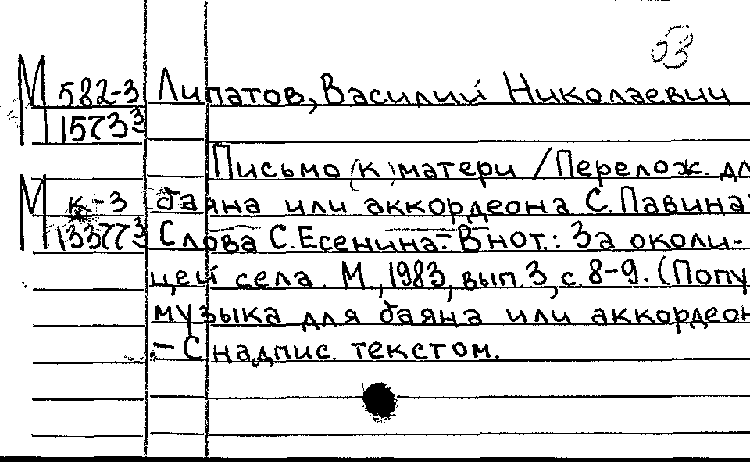 53
М 582-3 Липатов, Василий Николаевич
1573³
Письмо (к) матери / Перелож. дл
М к-3 баяна или аккордеона С. Павина.
13377³ Слова С. Есенина.- В нот.: За околи-
цей села. М., 1983, вып. 3, с. 8-9. (Попу
музыка для баяна или аккордеон
- С надпис. текстом.